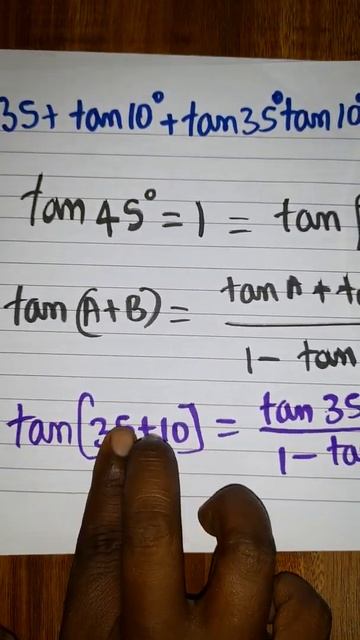 35 + tan10° + tan35°tan10°
tan 45° = 1 = tan
tan(A+B) = tan A + ta / 1 - tan
tan[35+10] = tan 35 / 1 - ta